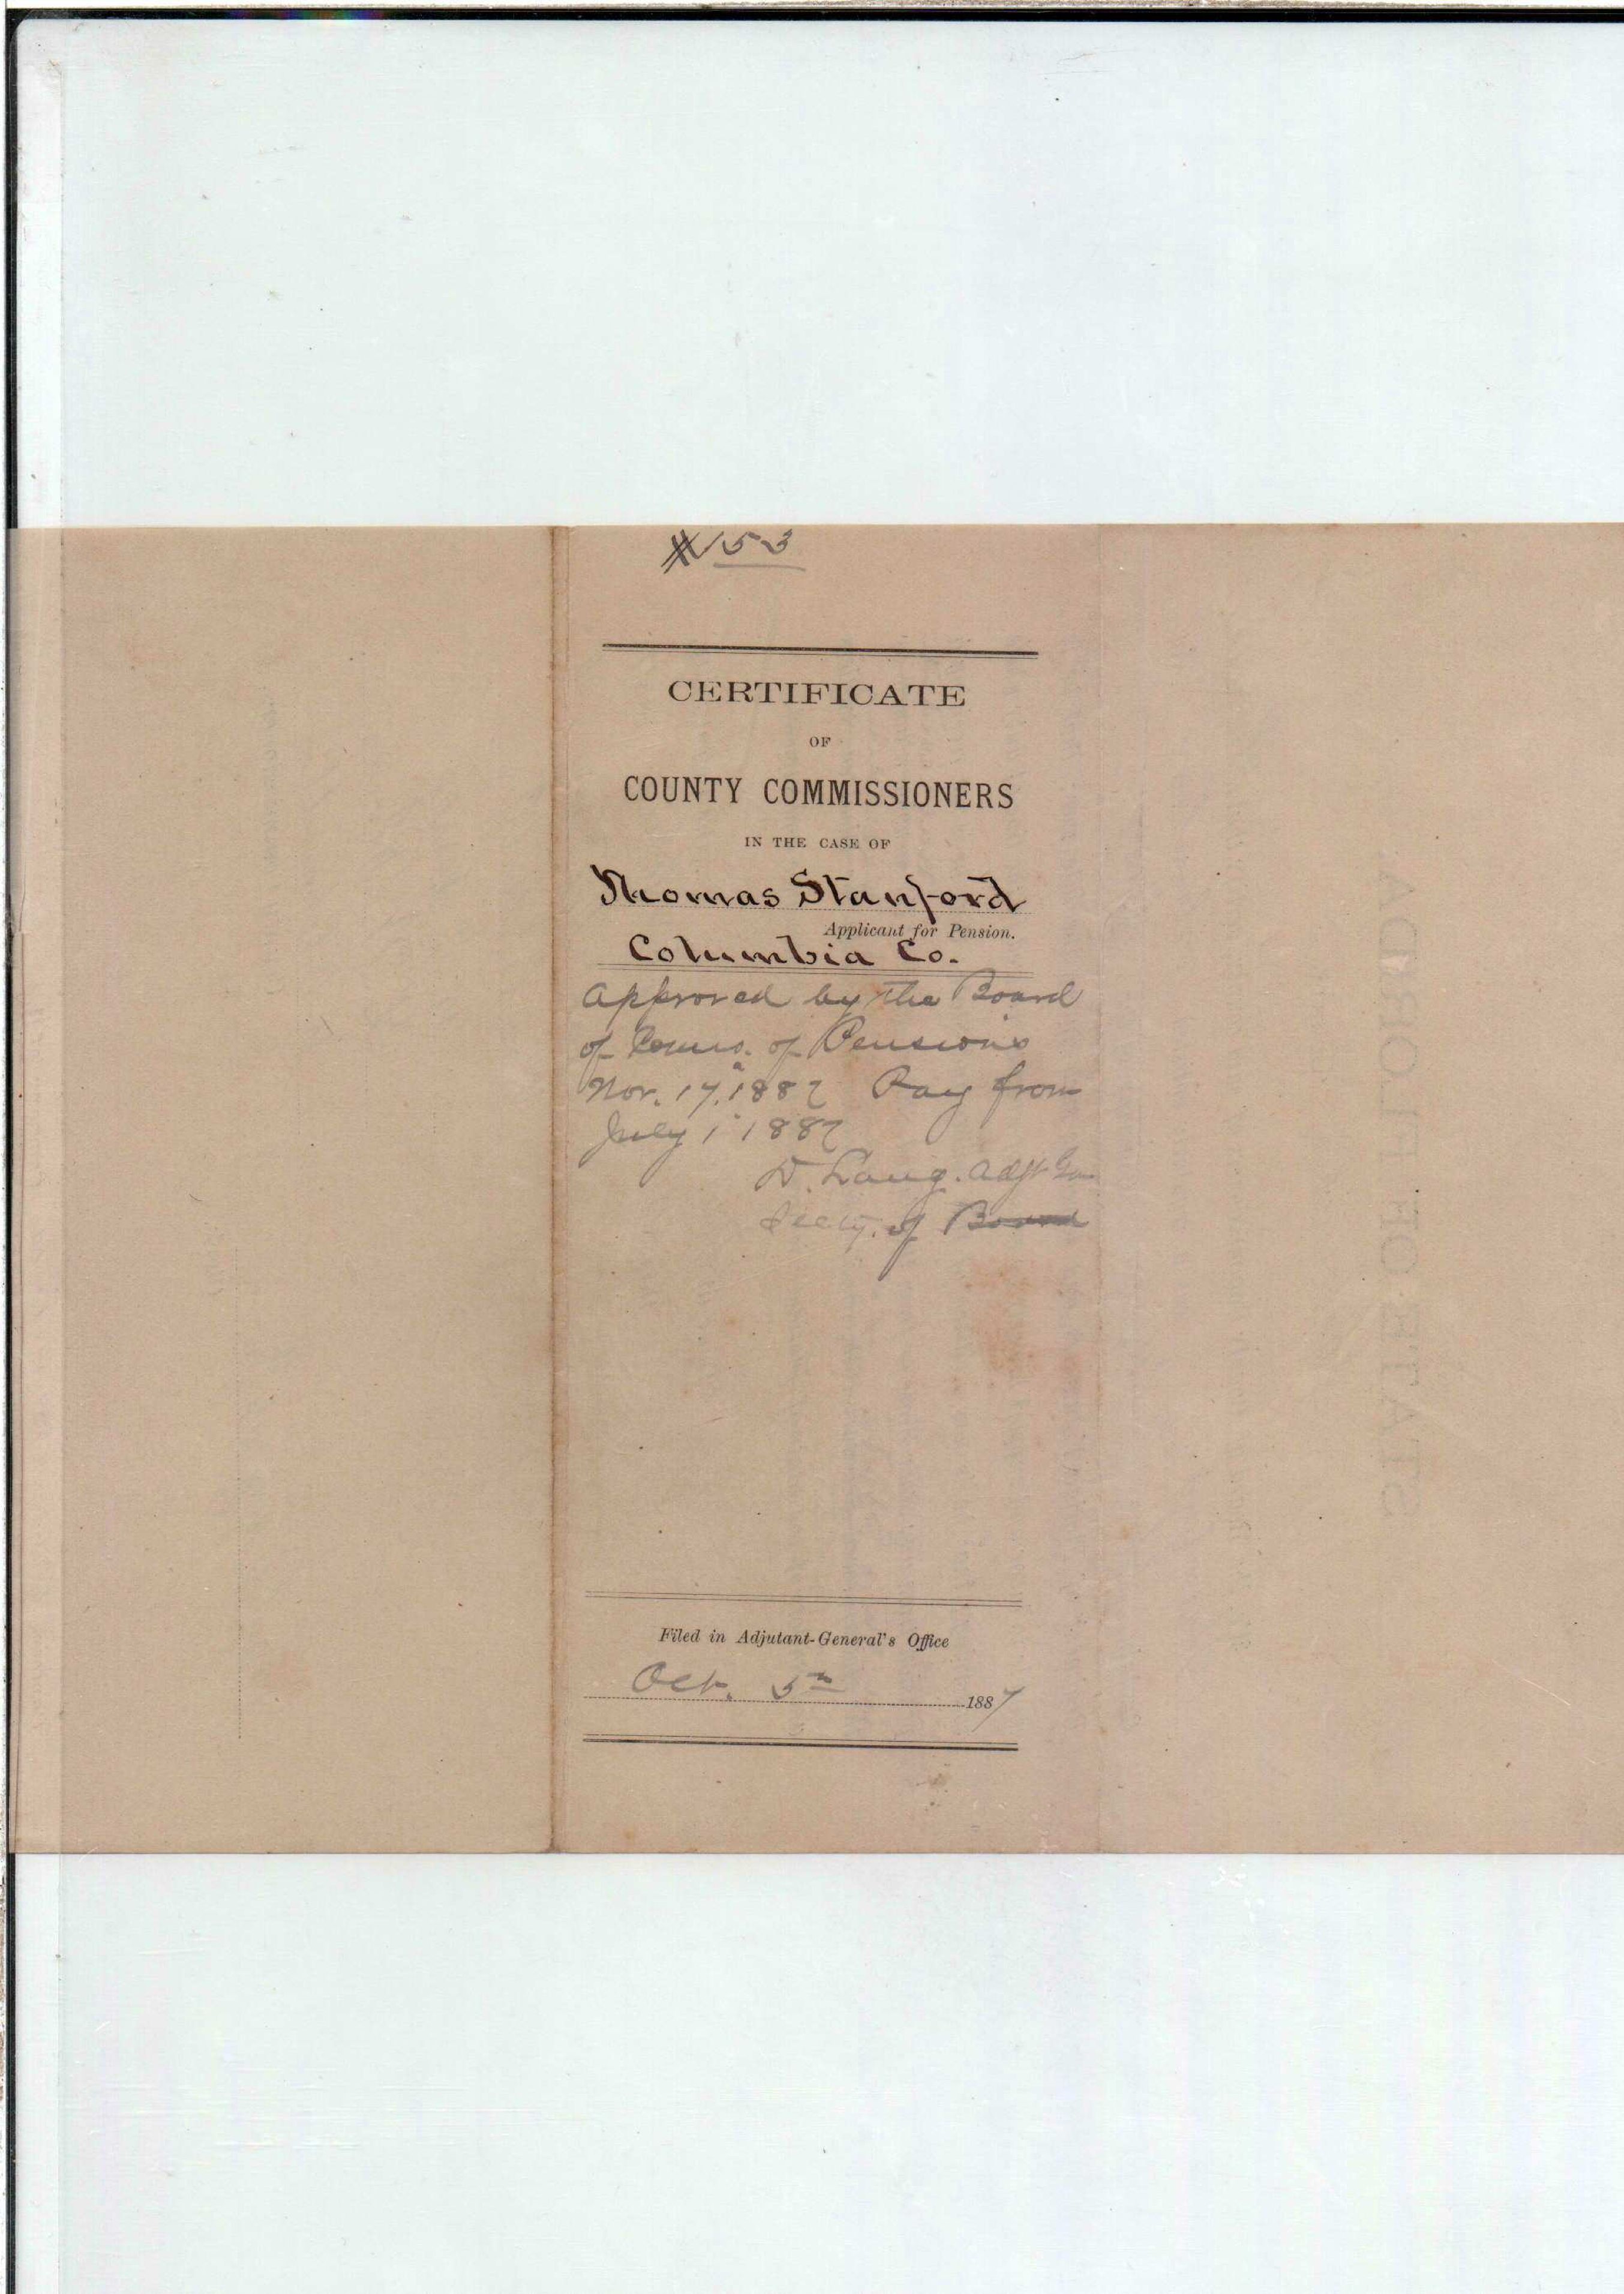 #153
CERTIFICATE
OF
COUNTY COMMISSIONERS
IN THE CASE OF
Thomas Stanford
Applicant for Pension.
Columbia Co.
Approved by the Board
of Comrs. of Pensions
Nov. 17, 1887 Pay from
July 1 1887
D. Lang. Adjt Gen
Secty. of Board
Filed in Adjutant-General's Office
Oct. 5th 1887
STATE OF FLORIDA